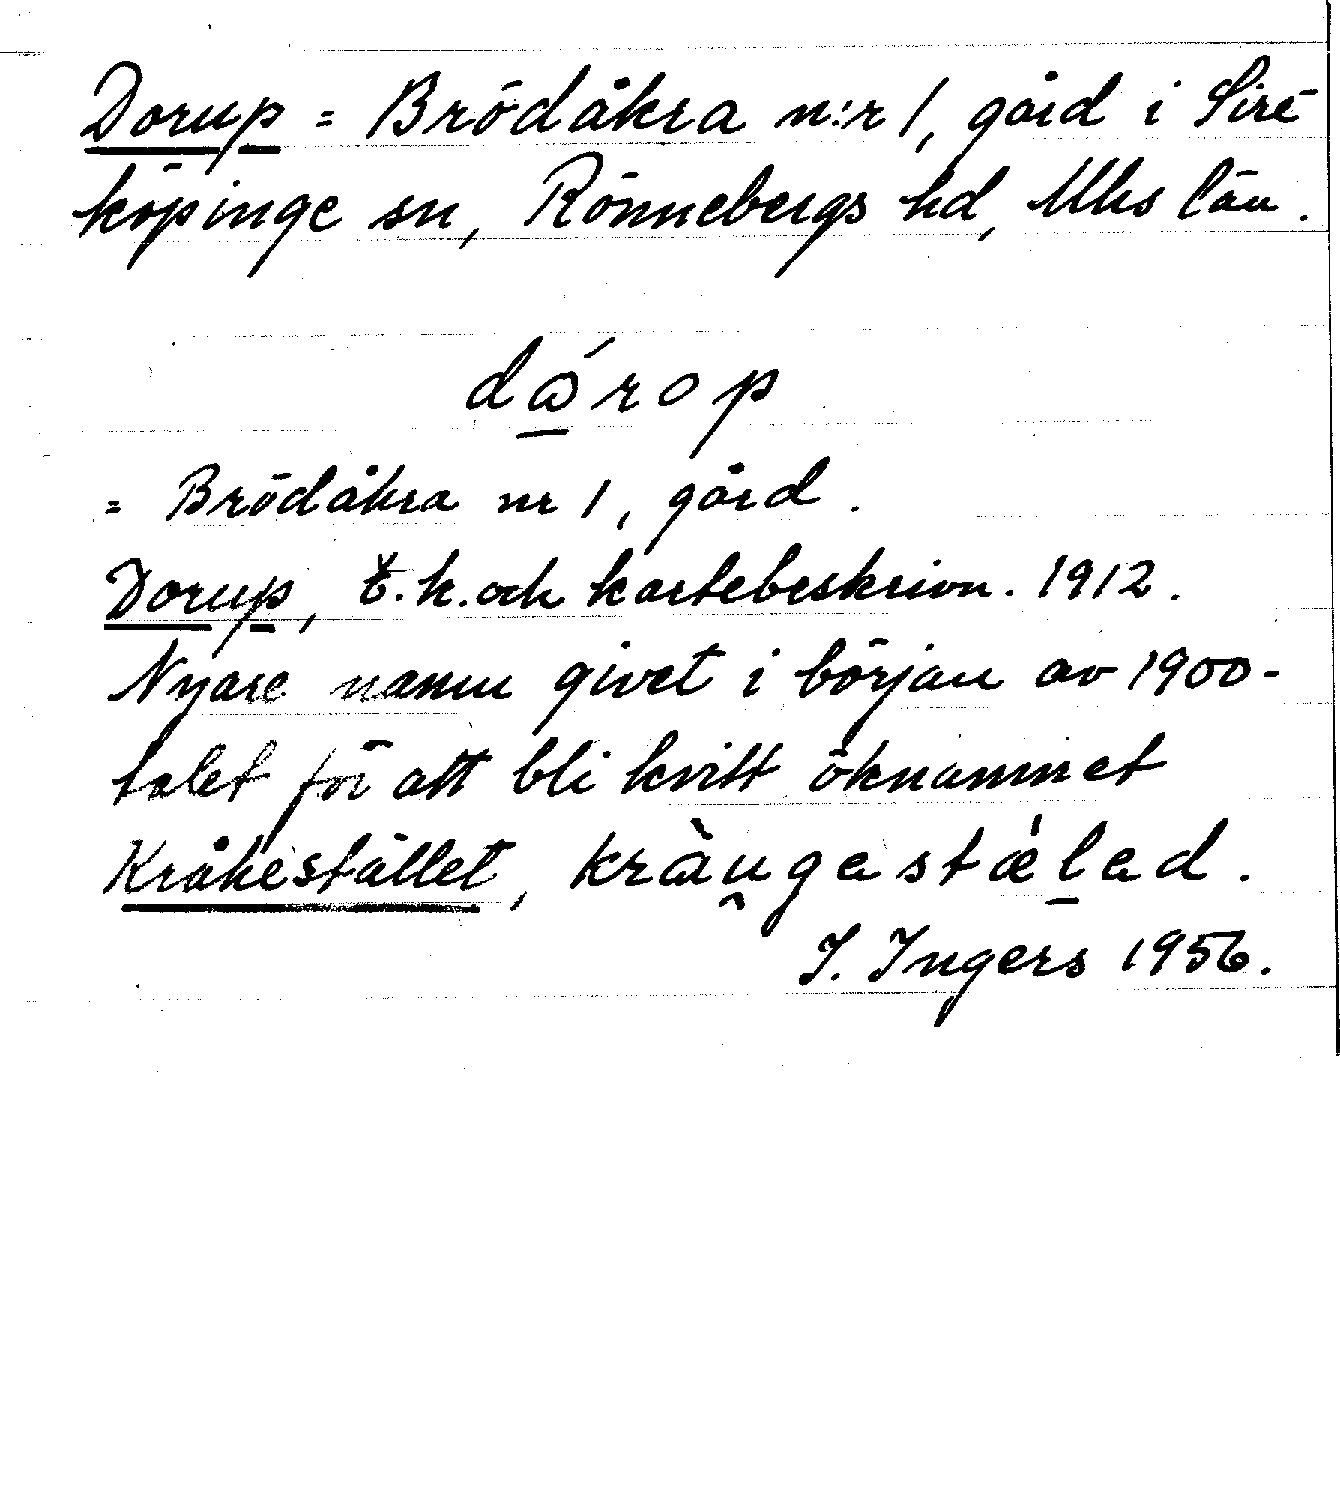 Dorup = Brödåkra n:r 1, gård i Sire-
köpinge sn, Rönnebergs hd, Mhs län.
dárop
= Brödåkra nr 1, gård.
Dorup, t.k. och kartebeskrivn. 1912.
Nyare namn givet i början av 1900-
talet för att bli kvitt öknamnet
Kråkestället, kràugastǽlad.
I. Ingers 1956.